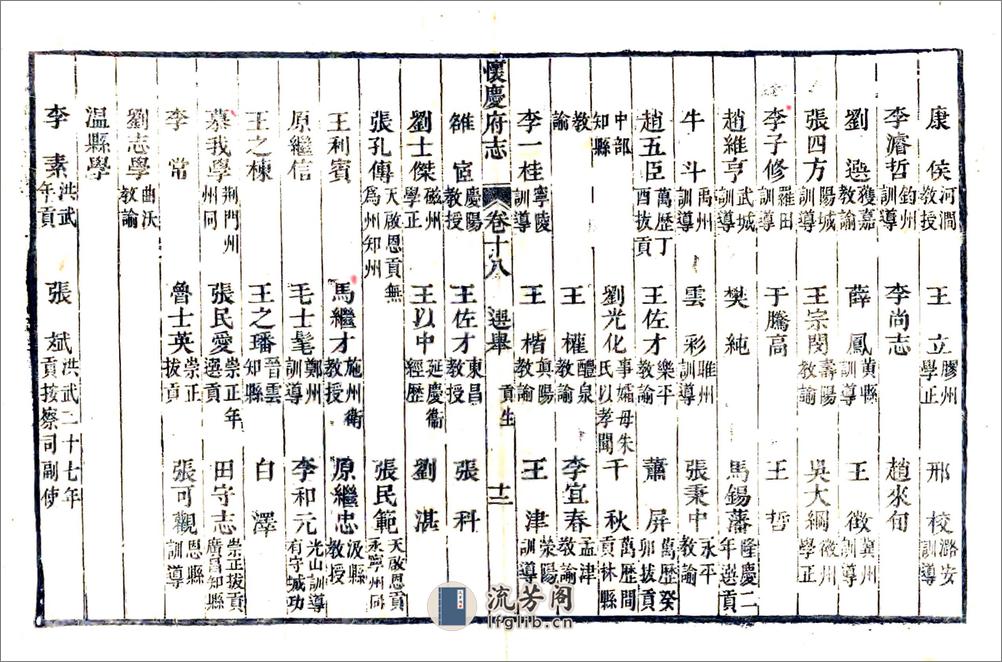 康侯河澗教授 王立膠州學正 邢校潞安訓導
李濬哲鈞州訓導 李尚志 趙來旬
劉選獲嘉教諭 薛鳳黃縣訓導 王徵冀州訓導
張四方陽城訓導 王宗閔壽陽教諭 吳大綱徽州學正
李子修羅田訓導 于騰高 王哲
趙維亨武城訓導 樊純 馬錫藩隆慶二年選貢
牛斗禹州訓導 雲彩睢州訓導 張秉中永平教諭
趙五臣萬歷丁酉拔貢 王佐才樂平教諭 蕭屏萬歷癸卯拔貢
中部知縣 劉光化事孀母朱氏以孝聞 千秋萬歷間貢林縣
教諭 王權醴泉教諭 李宜春孟津教諭
李一桂寧陵訓導 王楷眞陽教諭 王津榮陽訓導
懷慶府志 卷十八 選舉 貢生 十二
雒宧慶陽教授 王佐才東昌教授 張科
劉士傑磁州學正 王以中延慶衞經歷 劉湛
張孔傳天啟恩貢無爲州知州 張民範天啟恩貢永寧州同
王利賓 馬繼才施州衞教授 原繼忠汲縣教授
原繼信 毛士髦鄭州訓導 李和元光山訓導有守城功
王之棟 王之璠晉雲知縣 白澤
慕我學荆門州州同 張民愛崇正年選貢 田守志崇正拔貢廣昌知縣
李常 魯士英崇正拔貢 張可觀恩縣訓導
劉志學曲沃教諭
溫縣學
李素洪武年貢 張斌洪武二十七年貢按察司副使
流芳阁
lfglib.cn